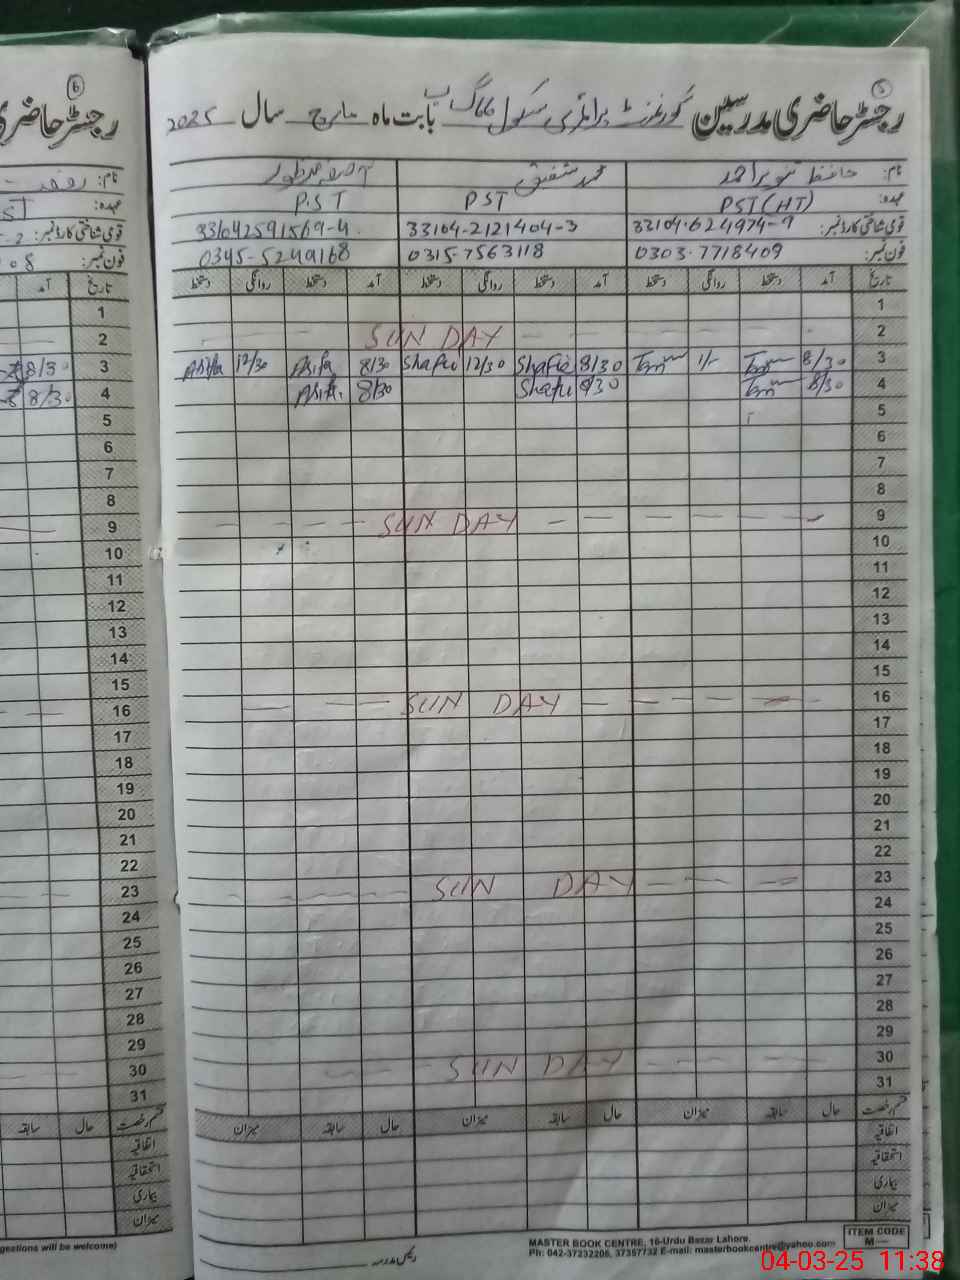 6
رجسٹر حاضری
نام:
عہدہ:
قومی شناختی کارڈ نمبر:
فون نمبر:
تاریخ آمد
1
2
3 8/30
4 8/30
5
6
7
8
9
10
11
12
13
14
15
16
17
18
19
20
21
22
23
24
25
26
27
28
29
30
31
قسم رخصت حال سابقہ
اتفاقیہ
استحقاقیہ
بیماری
میزان
gestions will be welcome)
5
رجسٹر حاضری مدرسین گورنمنٹ پرائمری سکول بابت ماہ مارچ سال 2025
نام: حافظ تنویر احمد محمد شفیق
عہدہ: PST (HT) PST P.S.T
قومی شناختی کارڈ نمبر: 33104-624974-9 33104-2121404-3 331042591569-4
فون نمبر: 0303-7718409 0315-7563118 0345-5249168
تاریخ آمد دستخط روانگی دستخط آمد دستخط روانگی دستخط آمد دستخط روانگی دستخط
1
2 SUN DAY
3 8/30 1/- 8/30 Shafie 12/30 Shafie 8/30 Asifa 12/30 Asifa
4 8/30 8/30 Shafie 8/30 Asifa
5
6
7
8
9 SUN DAY
10
11
12
13
14
15
16 SUN DAY
17
18
19
20
21
22
23 SUN DAY
24
25
26
27
28
29
30 SUN DAY
31
قسم رخصت حال سابقہ میزان حال سابقہ میزان حال سابقہ میزان
اتفاقیہ
استحقاقیہ
بیماری
میزان
رئیس مدرسہ
MASTER BOOK CENTRE, 16-Urdu Bazar Lahore.
Ph: 042-37232206, 37357732 E-mail: masterbookcentre@yahoo.com
ITEM CODE
M—
04-03-25 11:38